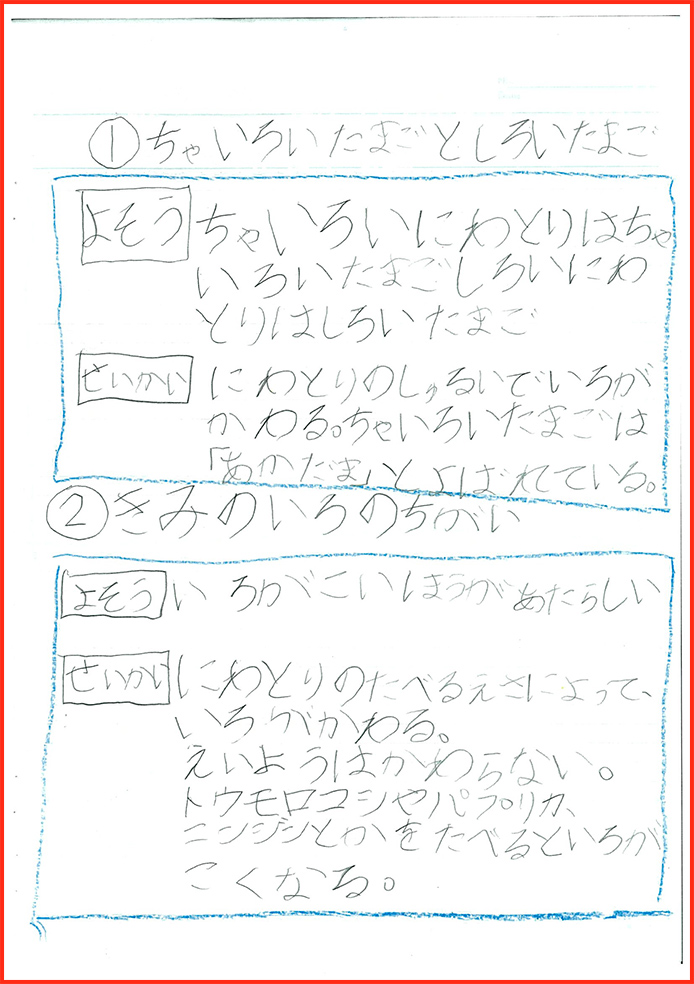 ① ちゃいろいたまごとしろいたまご
よそう ちゃいろいにわとりはちゃ
いろいたまごしろいにわ
とりはしろいたまご
せいかい にわとりのしゅるいでいろが
かわる。ちゃいろいたまごは
「あかだま」とよばれている。
② きみのいろのちがい
よそう いろがこいほうがあたらしい
せいかい にわとりのたべるえさによって、
いろがかわる。
えいようはかわらない。
トウモロコシやパプリカ、
ニンジンとかをたべるといろが
こくなる。